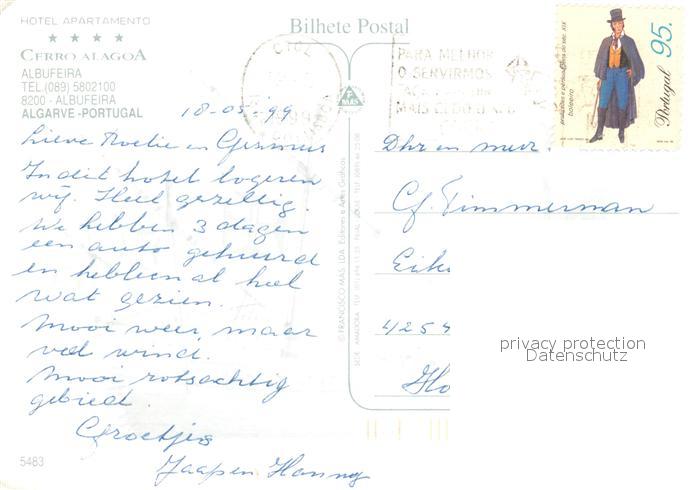 HOTEL APARTAMENTO
CERRO ALAGOA
ALBUFEIRA
TEL.(089) 5802100
8200 - ALBUFEIRA
ALGARVE - PORTUGAL
Bilhete Postal
PARA MELHOR
O SERVIRMOS
MAIS CEDO
95.
Portugal
18-05-'99
Lieve Roelie en Germus
In dit hotel logeren
wij. Heel gezellig.
We hebben 3 dagen
een auto gehuurd
en hebben al heel
wat gezien.
Mooi weer, maar
veel wind.
Mooi rotsachtig
gebied.
Groetjes
Jaap en Hanny
5483
© FRANCISCO MAS, LDA. Editores e Artes Gráficas
Dhr en mevr.
Cf. Timmerman
Eik
4254
privacy protection
Datenschutz